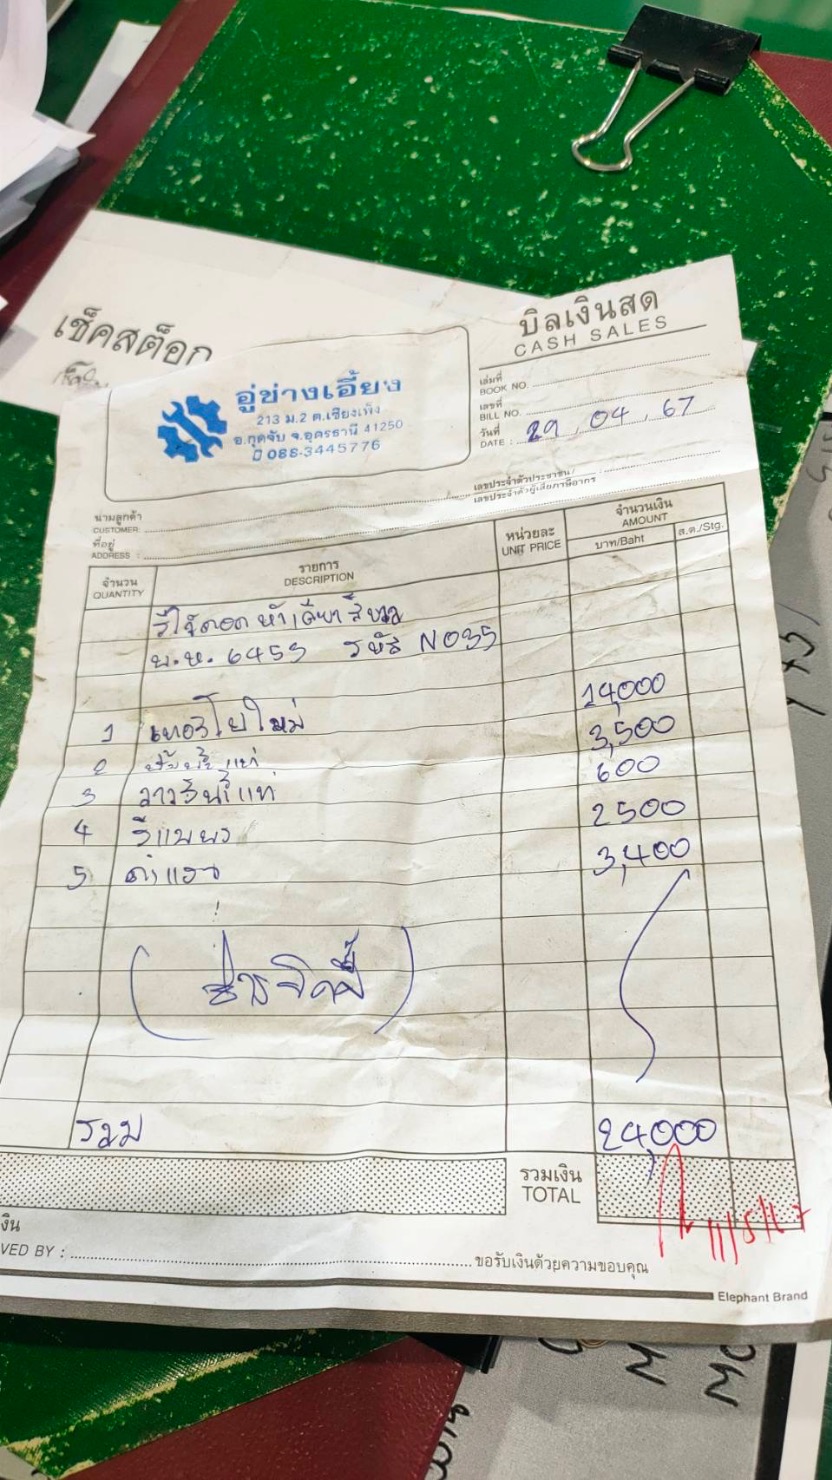 เช็คสต็อก
บิลเงินสด
CASH SALES
อู่ช่างเอี้ยง
213 ม.2 ต.เชียงเพ็ง
อ.กุดจับ จ.อุดรธานี 41250
088-3445776
เล่มที่
BOOK NO.
เลขที่
BILL NO.
วันที่
DATE : 29, 04, 67
เลขประจำตัวประชาชน /
เลขประจำตัวผู้เสียภาษีอากร
นามลูกค้า
CUSTOMER
ที่อยู่
ADDRESS :
จำนวน
QUANTITY
รายการ
DESCRIPTION
หน่วยละ
UNIT PRICE
จำนวนเงิน
AMOUNT
บาท/Baht
ส.ต./Stg.
สีขาว
6453 รหัส NO35
1 เทอร์โบใหม่ 14,000
2 3,500
3 600
4 2500
5 ค่าแรง 3,400
รวม 24,000
รวมเงิน
TOTAL
11/5/67
งิน
VED BY :
ขอรับเงินด้วยความขอบคุณ
Elephant Brand